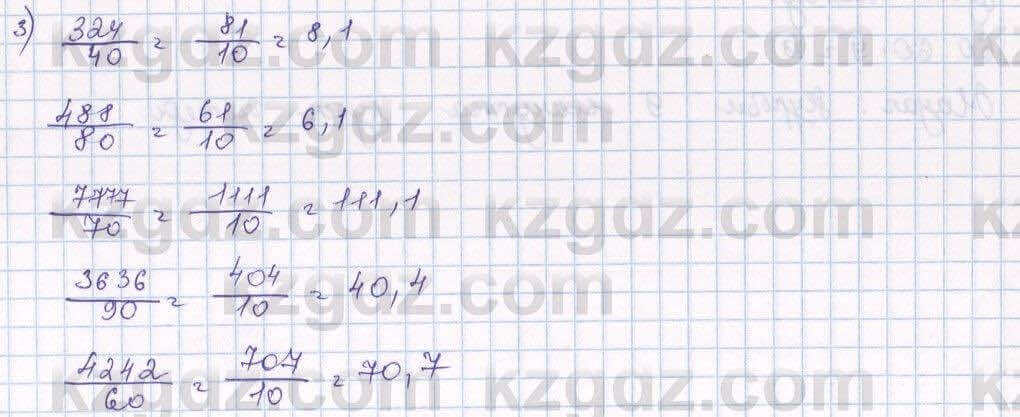 3) 324/40 = 81/10 = 8,1
488/80 = 61/10 = 6,1
7777/70 = 1111/10 = 111,1
3636/90 = 404/10 = 40,4
4242/60 = 707/10 = 70,7
kzgdz.com kzgdz.com
kzgdz.com
kzgdz.com kzgdz.com
kzgdz.com
kzgdz.com kzgdz.com